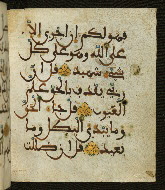 فهو لكم إن أجري إلا
على الله وهو على كل
شيء شهيد قل إن
ربي يقذف بالحق علم
الغيوب قل جاء الحق
وما يبدئ البطل وما
يعيد قل إن ضللت